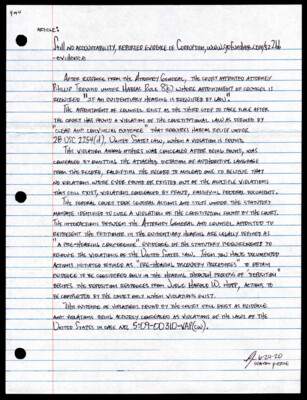 ARTICLE:
Still no accountability, reported evidence of Corruption,
-evidence
After response from the Attorney General, the court appointed attorney
Phillip Trevino under Habeas Rule 8(c) where appointment of counsel is
required "if an evidentiary hearing is required by law".
The appointment of counsel exist as the third step to take place after
the court has found a violation of the constitutional law as defined by
"clear and convincing evidence" that requires habeas relief under
28 USC 2254(d), United States law, when a violation is found.
The violation among others was concealed after being built, was
concealed by omitting the attached dictation of authoritive language
from the record, falsifying the record to mislead one to believe that
no violations were ever found or existed out of the multiple violations
that still exist, violations concealed by fraud, falsifying federal documents.
The federal court took several actions any state under the statutory
mandate identified to cure a violation of the constitution found by the court.
The interactions between the Attorney General and counsel appointed to
represent the petitioner in the evidentiary hearing are legally defined as
"a pre-hearing conference" evidence of the statutory requirements to
remove the violations of the United States law. Then you have documented
actions initiated defined as "pre-hearing discovery proceedings" to obtain
evidence to be considered only in the hearing through process of "deposition"
besides the deposition responses from Judge Harold W. Hopp, actions to
be completed by the court only when violations exist.
The evidence of violations found by the court still exist as evidence
and violations being actively concealed as violations of the laws of the
United States in case no. 5:09-00310-VAP(CW).
6-24-20